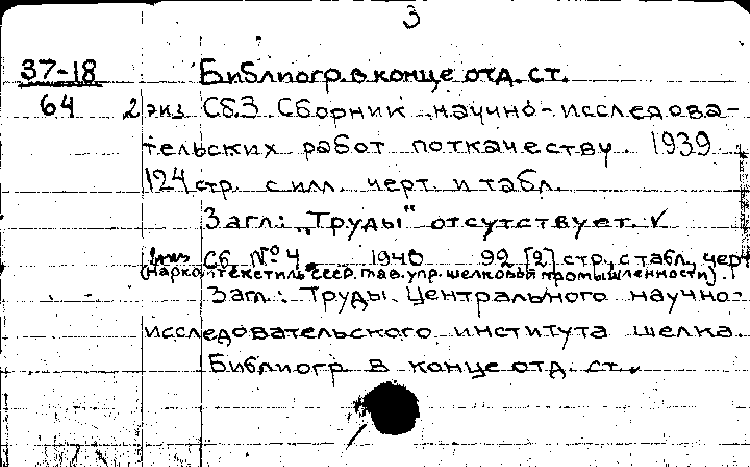 3
37-18 Библиогр. в конце отд. ст.
64 2 экз Сб.3 Сборник научно-исследова-
тельских работ по ткачеству. 1939
124 стр. с илл. черт. и табл.
Загл.: "Труды" отсутствует. ✓
Сб № 4. 1940 92 [2] стр., с табл., черт
(Наркомтекстиль СССР. Глав. упр. шелковой промышленности).
Загл.: Труды Центрального научно-
исследовательского института шелка.
Библиогр. в конце отд. ст. ✓